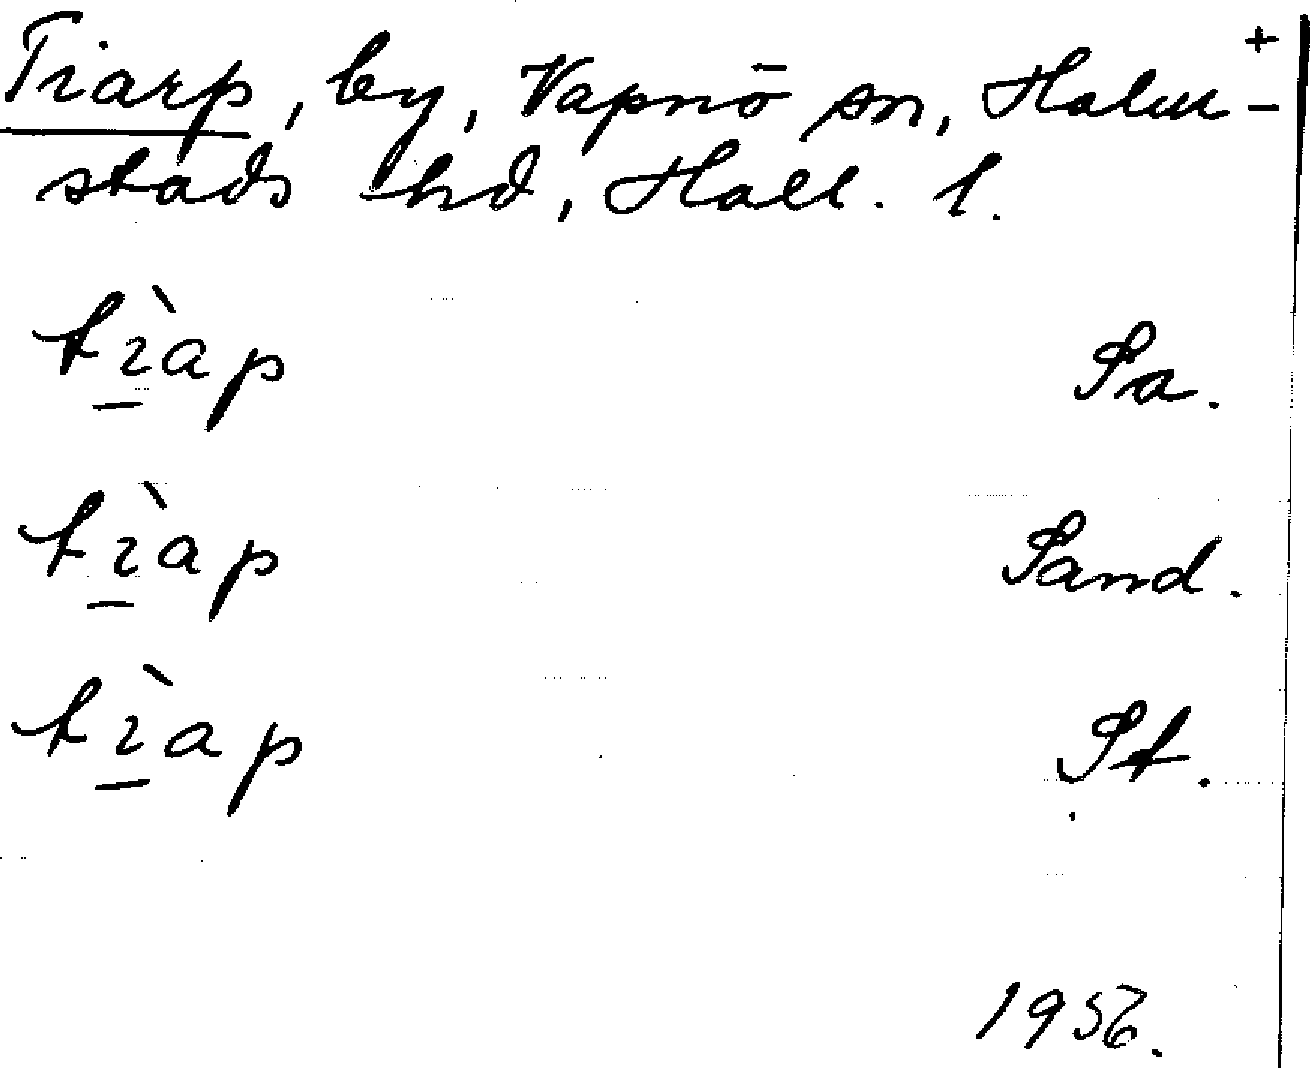 Tiarp, by, Vapnö sn, Halm-
stads hd, Hall. l. +
tìap Sa.
tìap Sand.
tìap St.
1956.